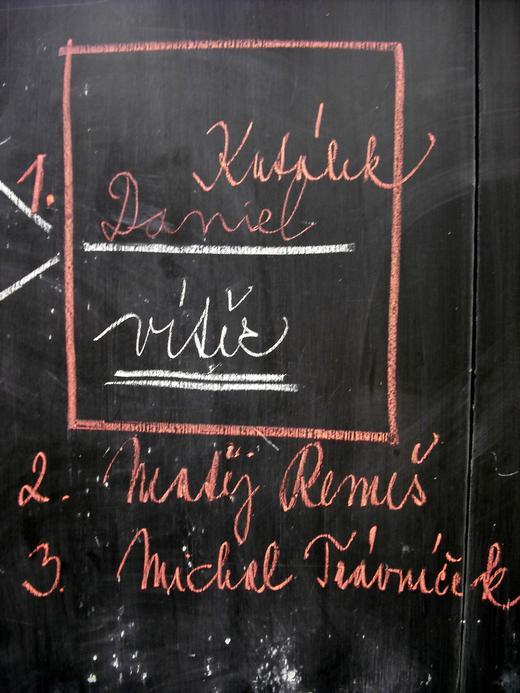 1. Kutálek
Daniel
vítěz
2. Matěj Remeš
3. Michal Trávníček